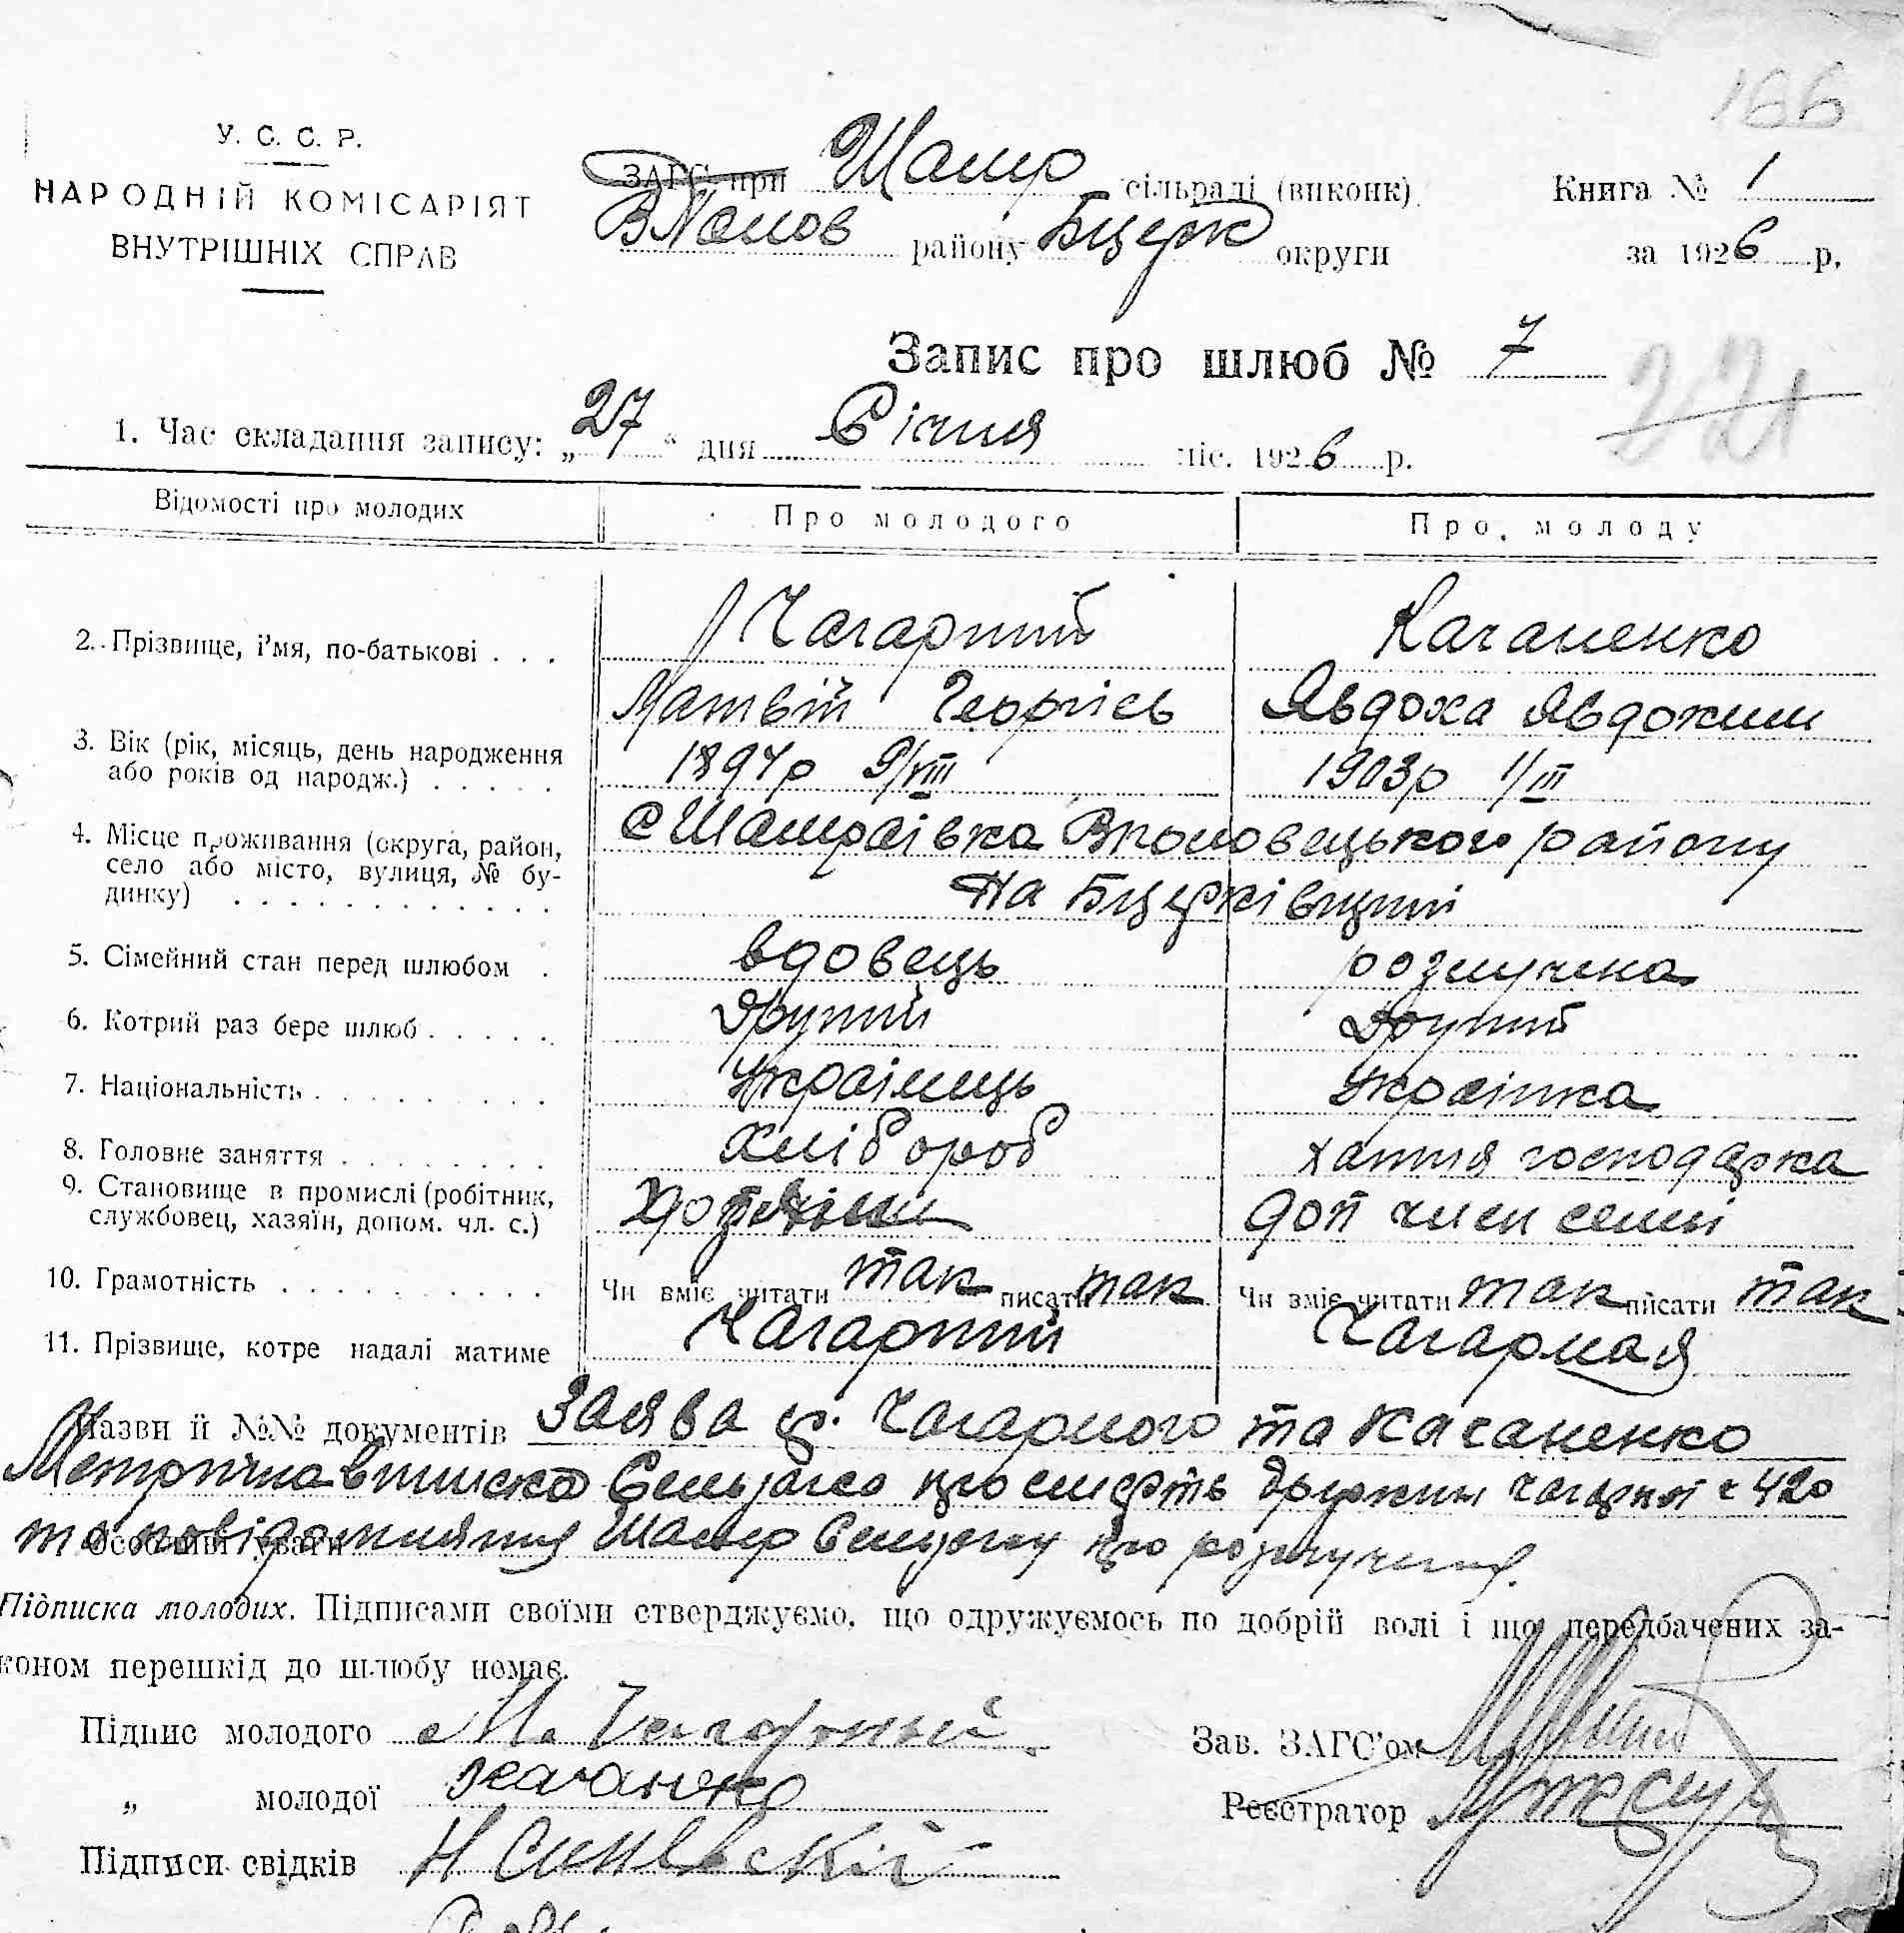 166
У. С. С. Р.
НАРОДНІЙ КОМІСАРІЯТ
ВНУТРІШНІХ СПРАВ
ЗАГС при Шамр сільраді (виконк)
району Бцерк округи
Книга № 1
за 1926 р.
Запис про шлюб № 7
221
1. Час складання запису: „27“ дня Січня міс. 1926 р.
Відомості про молодих
Про молодого
Про молоду
2. Прізвище, і'мя, по-батькові . . .
Чагарний
Качаненко
Матвій Георгієв
Явдоха Явдокими
3. Вік (рік, місяць, день народження
або років од народж.) . . . . .
1894р 9/VIII
1903р 1/III
4. Місце проживання (округа, район,
село або місто, вулиця, № бу-
динку) . . . . . . . . . . . .
с Шамраївка району
на Бцерківщині
5. Сімейний стан перед шлюбом .
вдовець
розлучена
6. Котрий раз бере шлюб . . . . .
Другий
Другий
7. Національність . . . . . . . . .
Українець
Українка
8. Головне заняття . . . . . . . .
Хлібороб
хатня господарка
9. Становище в промислі (робітник,
службовец, хазяїн, допом. чл. с.)
доп член семї
10. Грамотність . . . . . . . . . .
Чи вміє читати так писати так
Чи вміє читати так писати так
11. Прізвище, котре надалі матиме
Чагарний
Чагарная
Назви й №№ документів Заява гр. Чагарного та Качаненко
Метрична виписка про смерть дружини Чагарної ч 420
та повідомлення Шамр про розлучення.
Особливі уваги
Підписка молодих. Підписами своїми стверджуємо, що одружуємось по добрій волі і що передбачених за-
коном перешкід до шлюбу немає.
Підпис молодого М. Чагарный
Зав. ЗАГС'ом
„ молодої
Реєстратор
Підписи свідків Н Синевскій